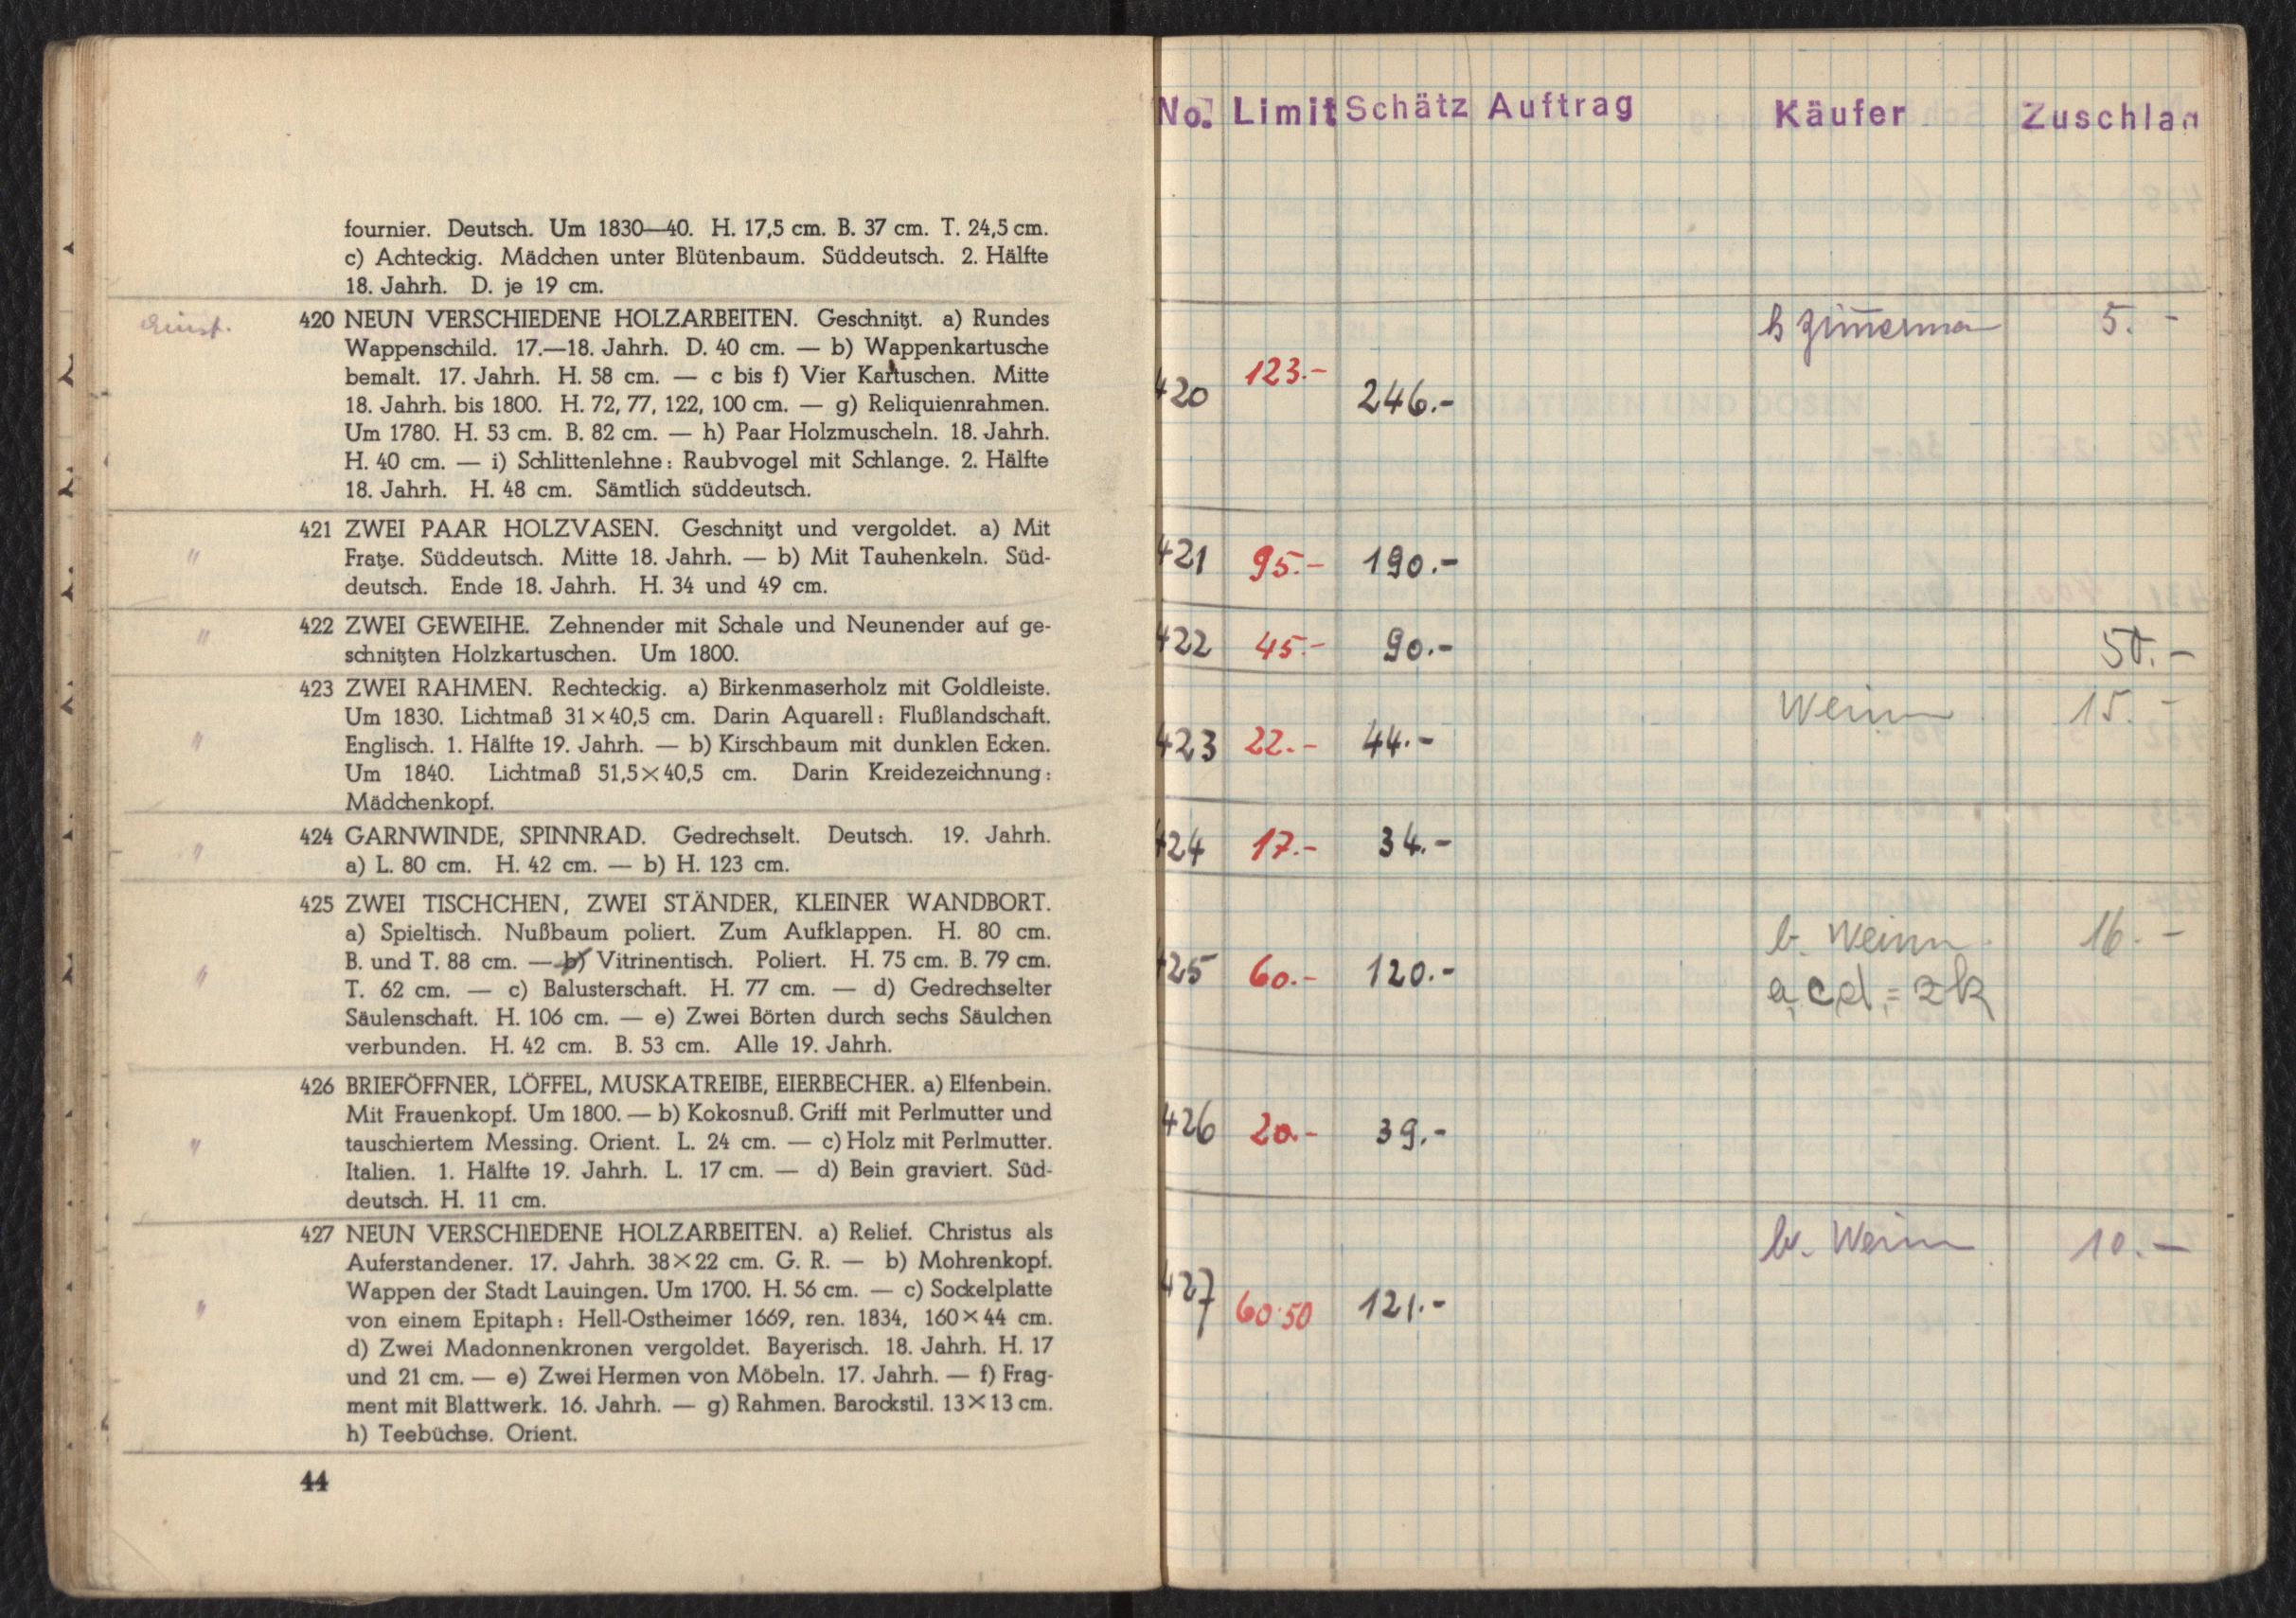 fournier. Deutsch. Um 1830—40. H. 17,5 cm. B. 37 cm. T. 24,5 cm.
c) Achteckig. Mädchen unter Blütenbaum. Süddeutsch. 2. Hälfte
18. Jahrh. D. je 19 cm.
420 NEUN VERSCHIEDENE HOLZARBEITEN. Geschnitzt. a) Rundes
Wappenschild. 17.—18. Jahrh. D. 40 cm. — b) Wappenkartusche
bemalt. 17. Jahrh. H. 58 cm. — c bis f) Vier Kartuschen. Mitte
18. Jahrh. bis 1800. H. 72, 77, 122, 100 cm. — g) Reliquienrahmen.
Um 1780. H. 53 cm. B. 82 cm. — h) Paar Holzmuscheln. 18. Jahrh.
H. 40 cm. — i) Schlittenlehne: Raubvogel mit Schlange. 2. Hälfte
18. Jahrh. H. 48 cm. Sämtlich süddeutsch.
" 421 ZWEI PAAR HOLZVASEN. Geschnitzt und vergoldet. a) Mit
Fratze. Süddeutsch. Mitte 18. Jahrh. — b) Mit Tauhenkeln. Süd-
deutsch. Ende 18. Jahrh. H. 34 und 49 cm.
" 422 ZWEI GEWEIHE. Zehnender mit Schale und Neunender auf ge-
schnitzten Holzkartuschen. Um 1800.
423 ZWEI RAHMEN. Rechteckig. a) Birkenmaserholz mit Goldleiste.
Um 1830. Lichtmaß 31×40,5 cm. Darin Aquarell: Flußlandschaft.
" Englisch. 1. Hälfte 19. Jahrh. — b) Kirschbaum mit dunklen Ecken.
Um 1840. Lichtmaß 51,5×40,5 cm. Darin Kreidezeichnung:
Mädchenkopf.
" 424 GARNWINDE, SPINNRAD. Gedrechselt. Deutsch. 19. Jahrh.
a) L. 80 cm. H. 42 cm. — b) H. 123 cm.
425 ZWEI TISCHCHEN, ZWEI STÄNDER, KLEINER WANDBORT.
a) Spieltisch. Nußbaum poliert. Zum Aufklappen. H. 80 cm.
" B. und T. 88 cm. — b) Vitrinentisch. Poliert. H. 75 cm. B. 79 cm.
T. 62 cm. — c) Balusterschaft. H. 77 cm. — d) Gedrechselter
Säulenschaft. H. 106 cm. — e) Zwei Börten durch sechs Säulchen
verbunden. H. 42 cm. B. 53 cm. Alle 19. Jahrh.
426 BRIEFÖFFNER, LÖFFEL, MUSKATREIBE, EIERBECHER. a) Elfenbein.
Mit Frauenkopf. Um 1800. — b) Kokosnuß. Griff mit Perlmutter und
" tauschiertem Messing. Orient. L. 24 cm. — c) Holz mit Perlmutter.
Italien. 1. Hälfte 19. Jahrh. L. 17 cm. — d) Bein graviert. Süd-
deutsch. H. 11 cm.
427 NEUN VERSCHIEDENE HOLZARBEITEN. a) Relief. Christus als
Auferstandener. 17. Jahrh. 38×22 cm. G. R. — b) Mohrenkopf.
Wappen der Stadt Lauingen. Um 1700. H. 56 cm. — c) Sockelplatte
" von einem Epitaph: Hell-Ostheimer 1669, ren. 1834, 160×44 cm.
d) Zwei Madonnenkronen vergoldet. Bayerisch. 18. Jahrh. H. 17
und 21 cm. — e) Zwei Hermen von Möbeln. 17. Jahrh. — f) Frag-
ment mit Blattwerk. 16. Jahrh. — g) Rahmen. Barockstil. 13×13 cm.
h) Teebüchse. Orient.
44
No. Limit Schätz Auftrag Käufer Zuschlag
5.-
420 123.- 246.-
421 95.- 190.-
422 45.- 90.- 50.-
15.-
423 22.- 44.-
424 17.- 34.-
16.-
425 60.- 120.- a, c, d, = zk
426 20.- 39.-
10.-
427 60.50 121.-